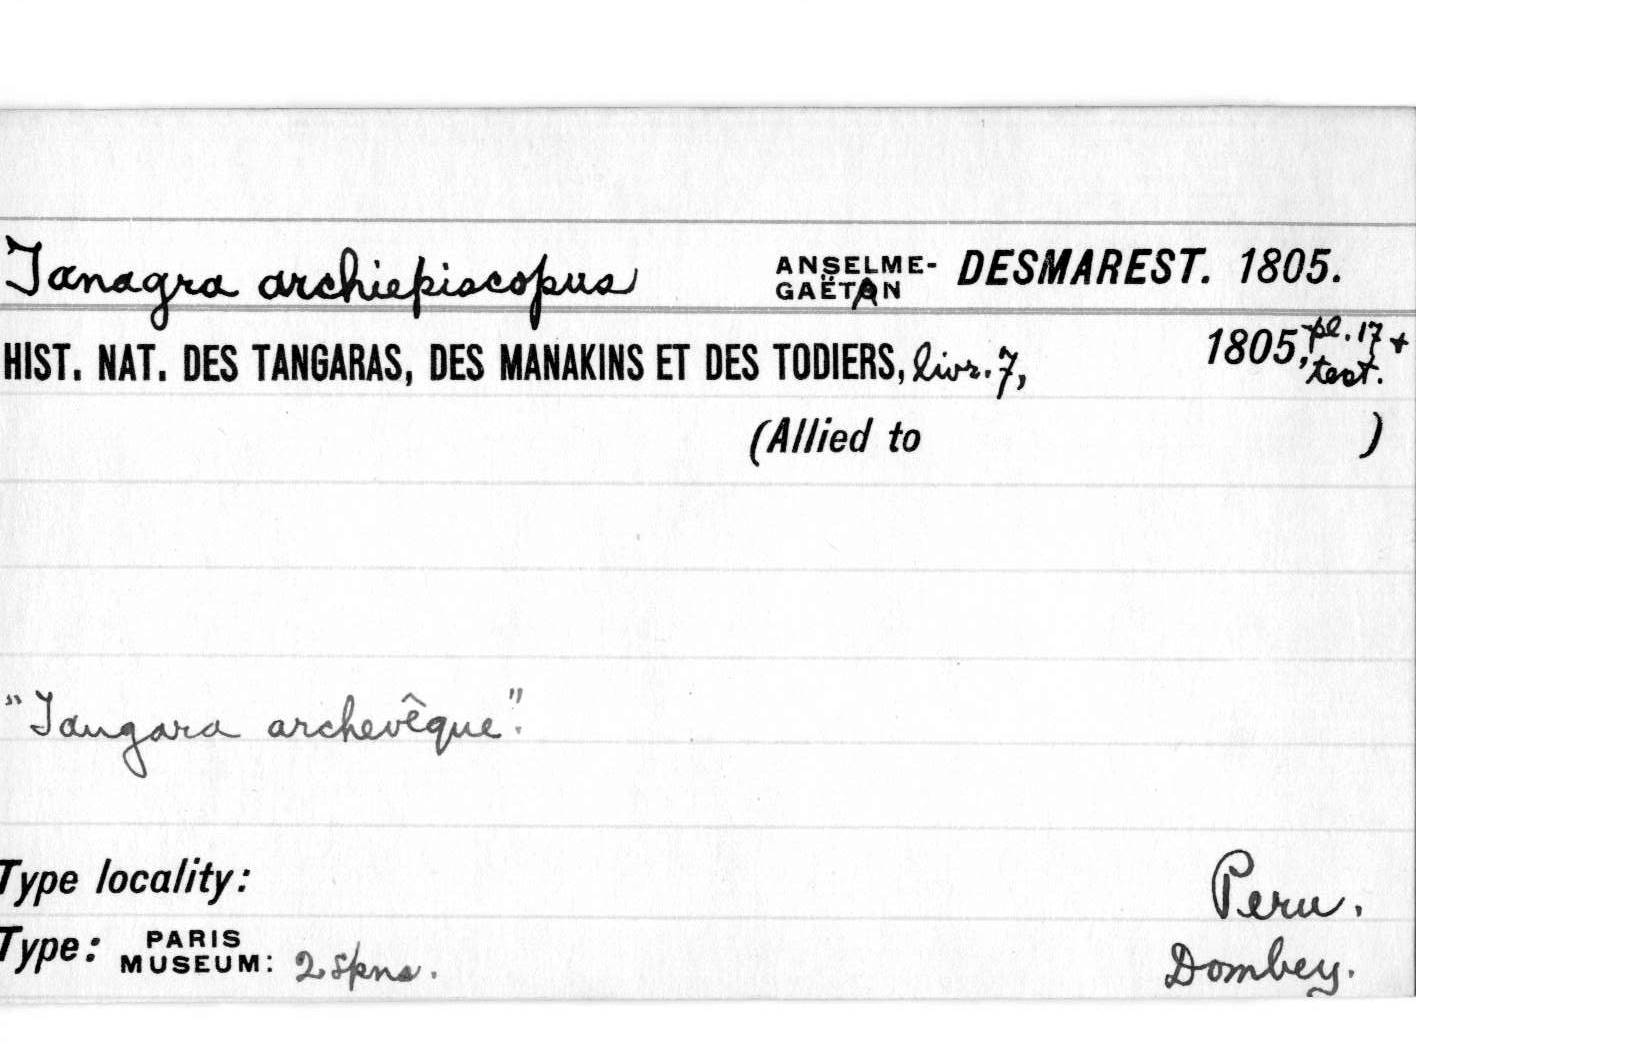 Tanagra archiepiscopus ANSELME-GAËTAN DESMAREST. 1805.
HIST. NAT. DES TANGARAS, DES MANAKINS ET DES TODIERS, livr. 7, 1805, pl. 17 + text.
(Allied to )
"Tangara archevêque".
Type locality: Peru.
Type: PARIS MUSEUM: 2 spns. Dombey.